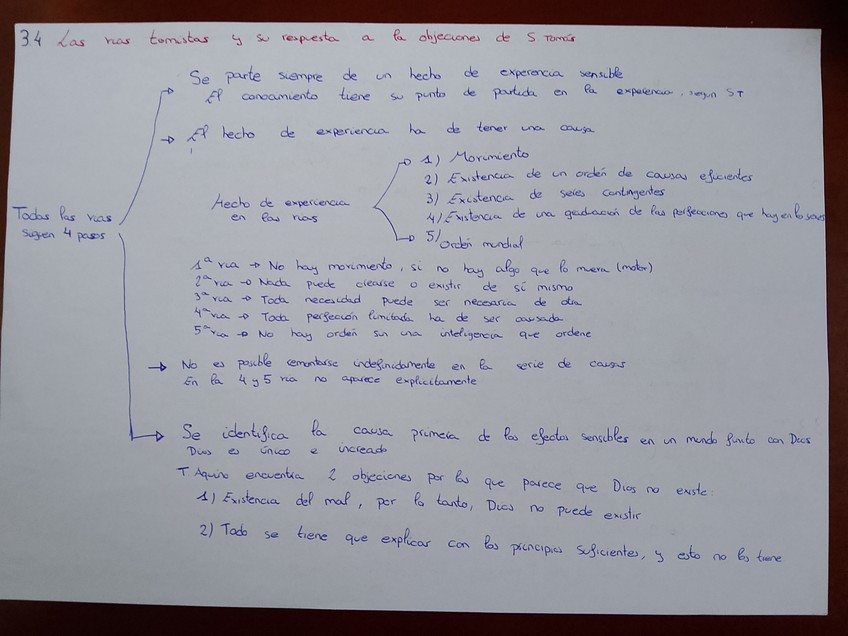 3.4 Las vias tomistas y su respuesta a la objeciones de S Tomás
Se parte siempre de un hecho de experencia sensible
El conocimiento tiene su punto de partida en la experiencia, segun ST
El hecho de experiencia ha de tener una causa
Todas las vias
siguen 4 pasos
Hecho de experiencia
en las vias
1) Movimiento
2) Existencia de un orden de causas eficientes
3) Existencia de seres contingentes
4) Existencia de una graduación de las perfecciones que hay en los seres
5) Orden mundial
1ª via → No hay movimiento, si no hay algo que lo mueva (motor)
2ª via → Nada puede crearse o existir de sí mismo
3ª via → Toda necesidad puede ser necesaria de otra
4ª via → Toda perfección limitada ha de ser causada
5ª via → No hay orden sin una inteligencia que ordene
No es posible remontarse indefinidamente en la serie de causas
En la 4 y 5 via no aparece explicitamente
Se identifica la causa primera de los efectos sensibles en un mundo finito con Dios
Dios es único e increado
T Aquino encuentra 2 objeciones por las que parece que Dios no existe:
1) Existencia del mal, por lo tanto, Dios no puede existir
2) Todo se tiene que explicar con los principios suficientes, y esto no los tiene